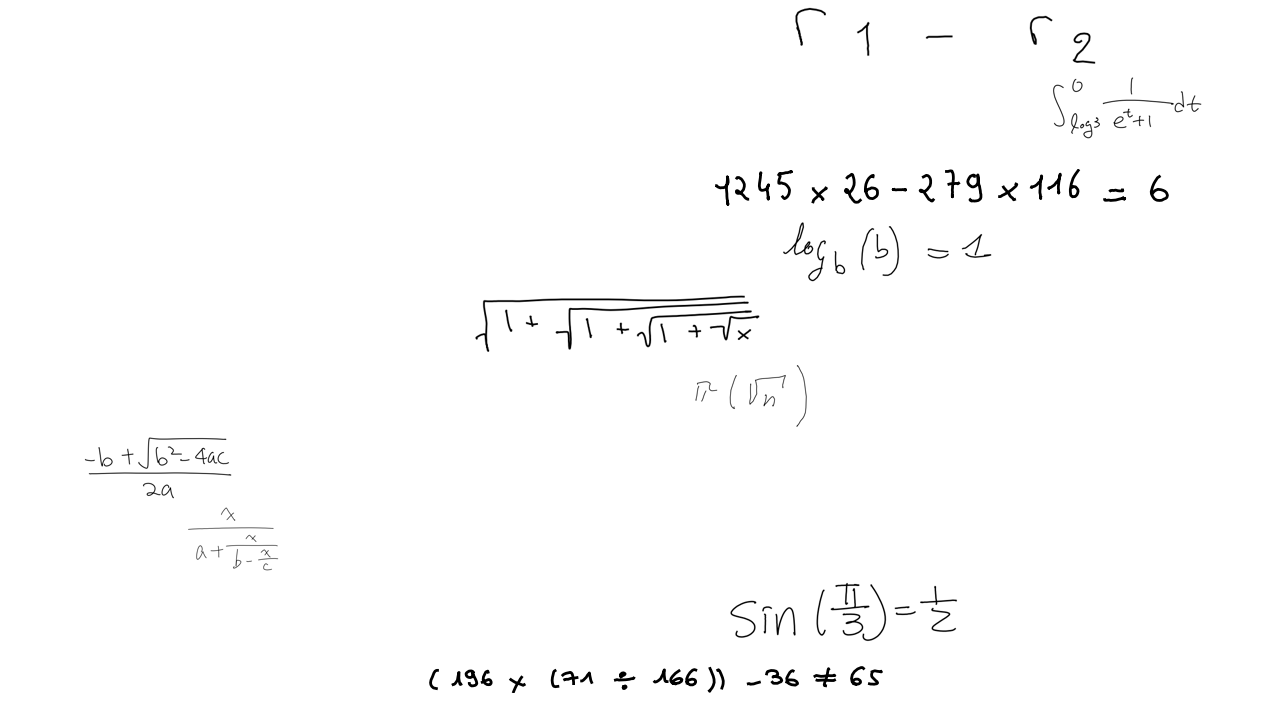 r_1 - r_2
\int_{\log 3}^{0} \frac{1}{e^t+1} dt
1245 × 26 - 279 × 116 = 6
\log_b(b) = 1
\sqrt{1+\sqrt{1+\sqrt{1+\sqrt{x}}}}
\pi(\sqrt{n})
\frac{-b+\sqrt{b^2-4ac}}{2a}
\frac{x}{a+\frac{x}{b-\frac{x}{c}}}
\sin(\frac{\pi}{3}) = \frac{1}{2}
(196 × (71 ÷ 166)) - 36 ≠ 65